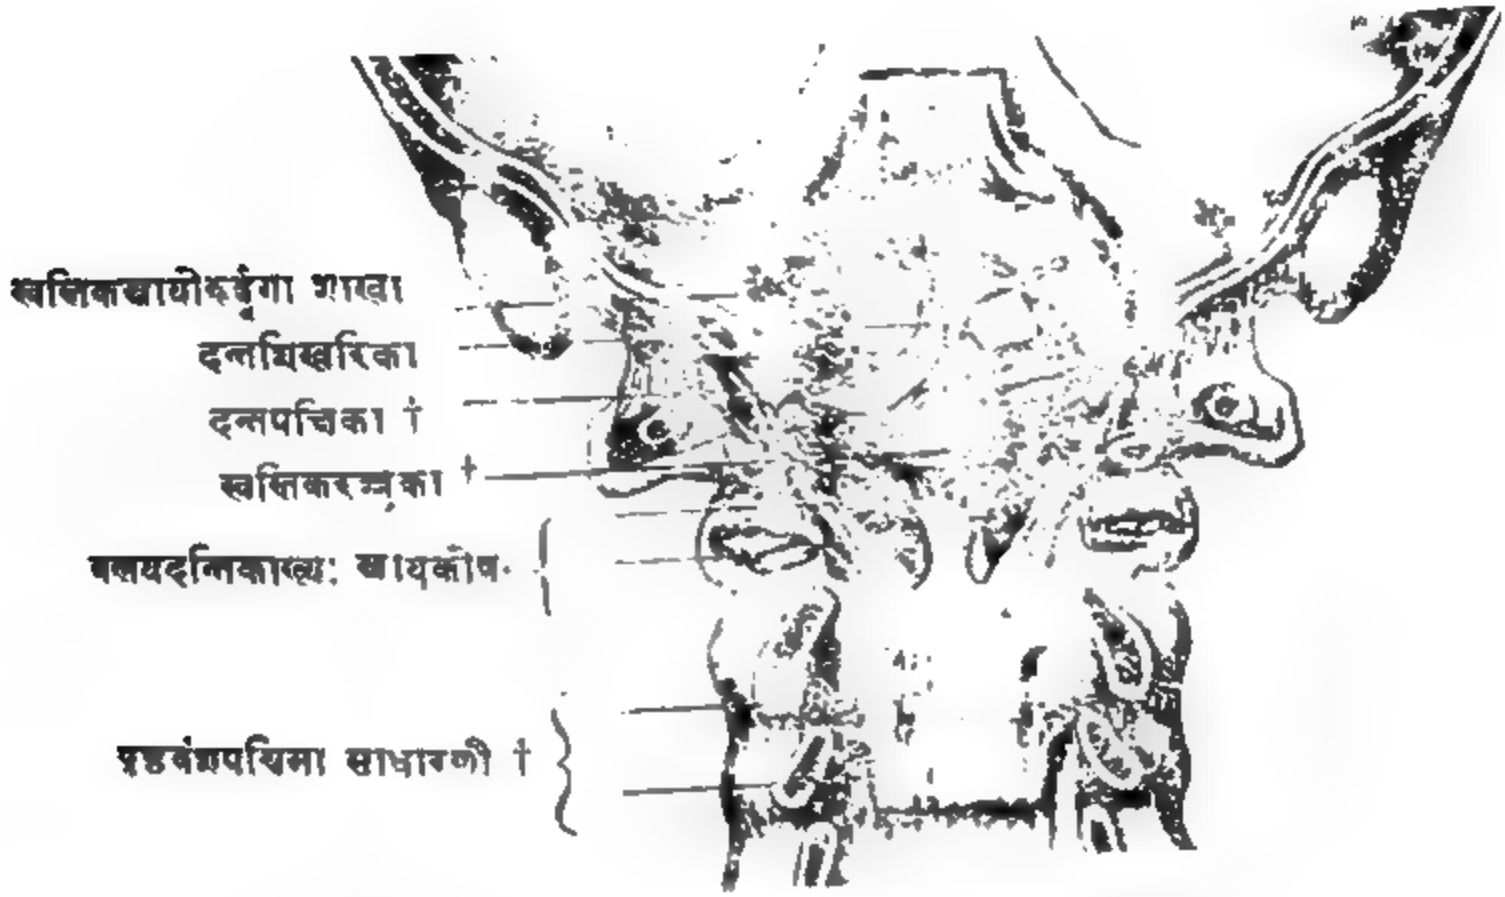 स्वस्तिकस्नायोरूर्द्ध्वगा शाखा
दन्तशिखरिका
दन्तपश्चिका †
स्वस्तिकरज्जुका †
वलयदन्तिकाख्यः स्नायुकोषः
पृष्ठवंशपश्चिमा साधारणी †